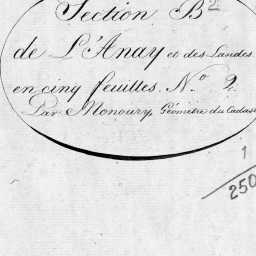 Section B 2
de L'Anay et des Landes
en cinq feuilles. N.o 2.
Par Monoury, Géomètre du Cadas
1
250